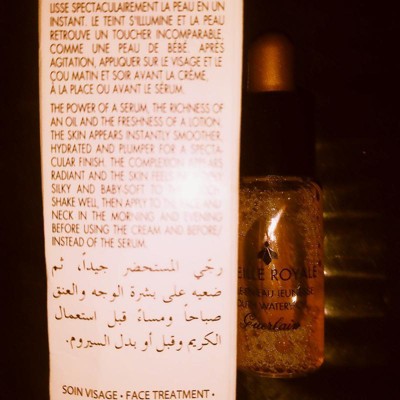 LISSE SPECTACULAIREMENT LA PEAU EN UN
INSTANT. LE TEINT S'ILLUMINE ET LA PEAU
RETROUVE UN TOUCHER INCOMPARABLE,
COMME UNE PEAU DE BÉBÉ. APRÈS
AGITATION, APPLIQUER SUR LE VISAGE ET LE
COU MATIN ET SOIR AVANT LA CRÈME,
À LA PLACE OU AVANT LE SÉRUM.
THE POWER OF A SERUM, THE RICHNESS OF
AN OIL AND THE FRESHNESS OF A LOTION:
THE SKIN APPEARS INSTANTLY SMOOTHER,
HYDRATED AND PLUMPER FOR A SPECTA-
CULAR FINISH. THE COMPLEXION APPEARS
RADIANT AND THE SKIN FEELS
SILKY AND BABY-SOFT TO THE
SHAKE WELL, THEN APPLY TO THE FACE AND
NECK IN THE MORNING AND EVENING
BEFORE USING THE CREAM AND BEFORE/
INSTEAD OF THE SERUM.
رجّي المستحضر جيداً، ثم
ضعيه على بشرة الوجه والعنق
صباحاً ومساءً قبل استعمال
الكريم وقبل أو بدل السيروم.
SOIN VISAGE • FACE TREATMENT •
EILLE ROYALE
EAU JEUNESSE
WATERY
Guerlain